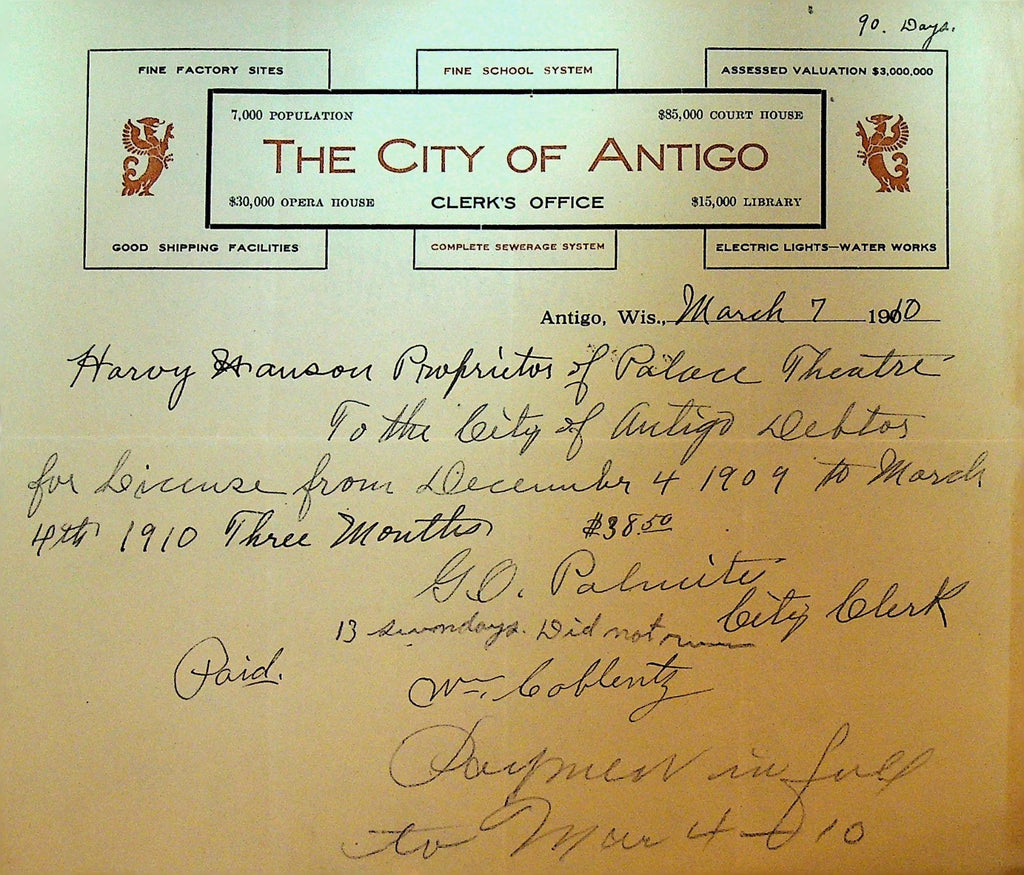 90. Days.
FINE FACTORY SITES
FINE SCHOOL SYSTEM
ASSESSED VALUATION $3,000,000
7,000 POPULATION
$85,000 COURT HOUSE
THE CITY OF ANTIGO
$30,000 OPERA HOUSE
CLERK'S OFFICE
$15,000 LIBRARY
GOOD SHIPPING FACILITIES
COMPLETE SEWERAGE SYSTEM
ELECTRIC LIGHTS—WATER WORKS
Antigo, Wis., March 7 1910
Harvy Hanson Proprietor of Palace Theatre
To the City of Antigo Debtor
for License from December 4 1909 to March
4th 1910 Three Months $38.50
G.O. Palmiter
City Clerk
13 sundays. Did not run
Paid.
Wm. Coblentz
Payment in full
to Mar 4 - 10